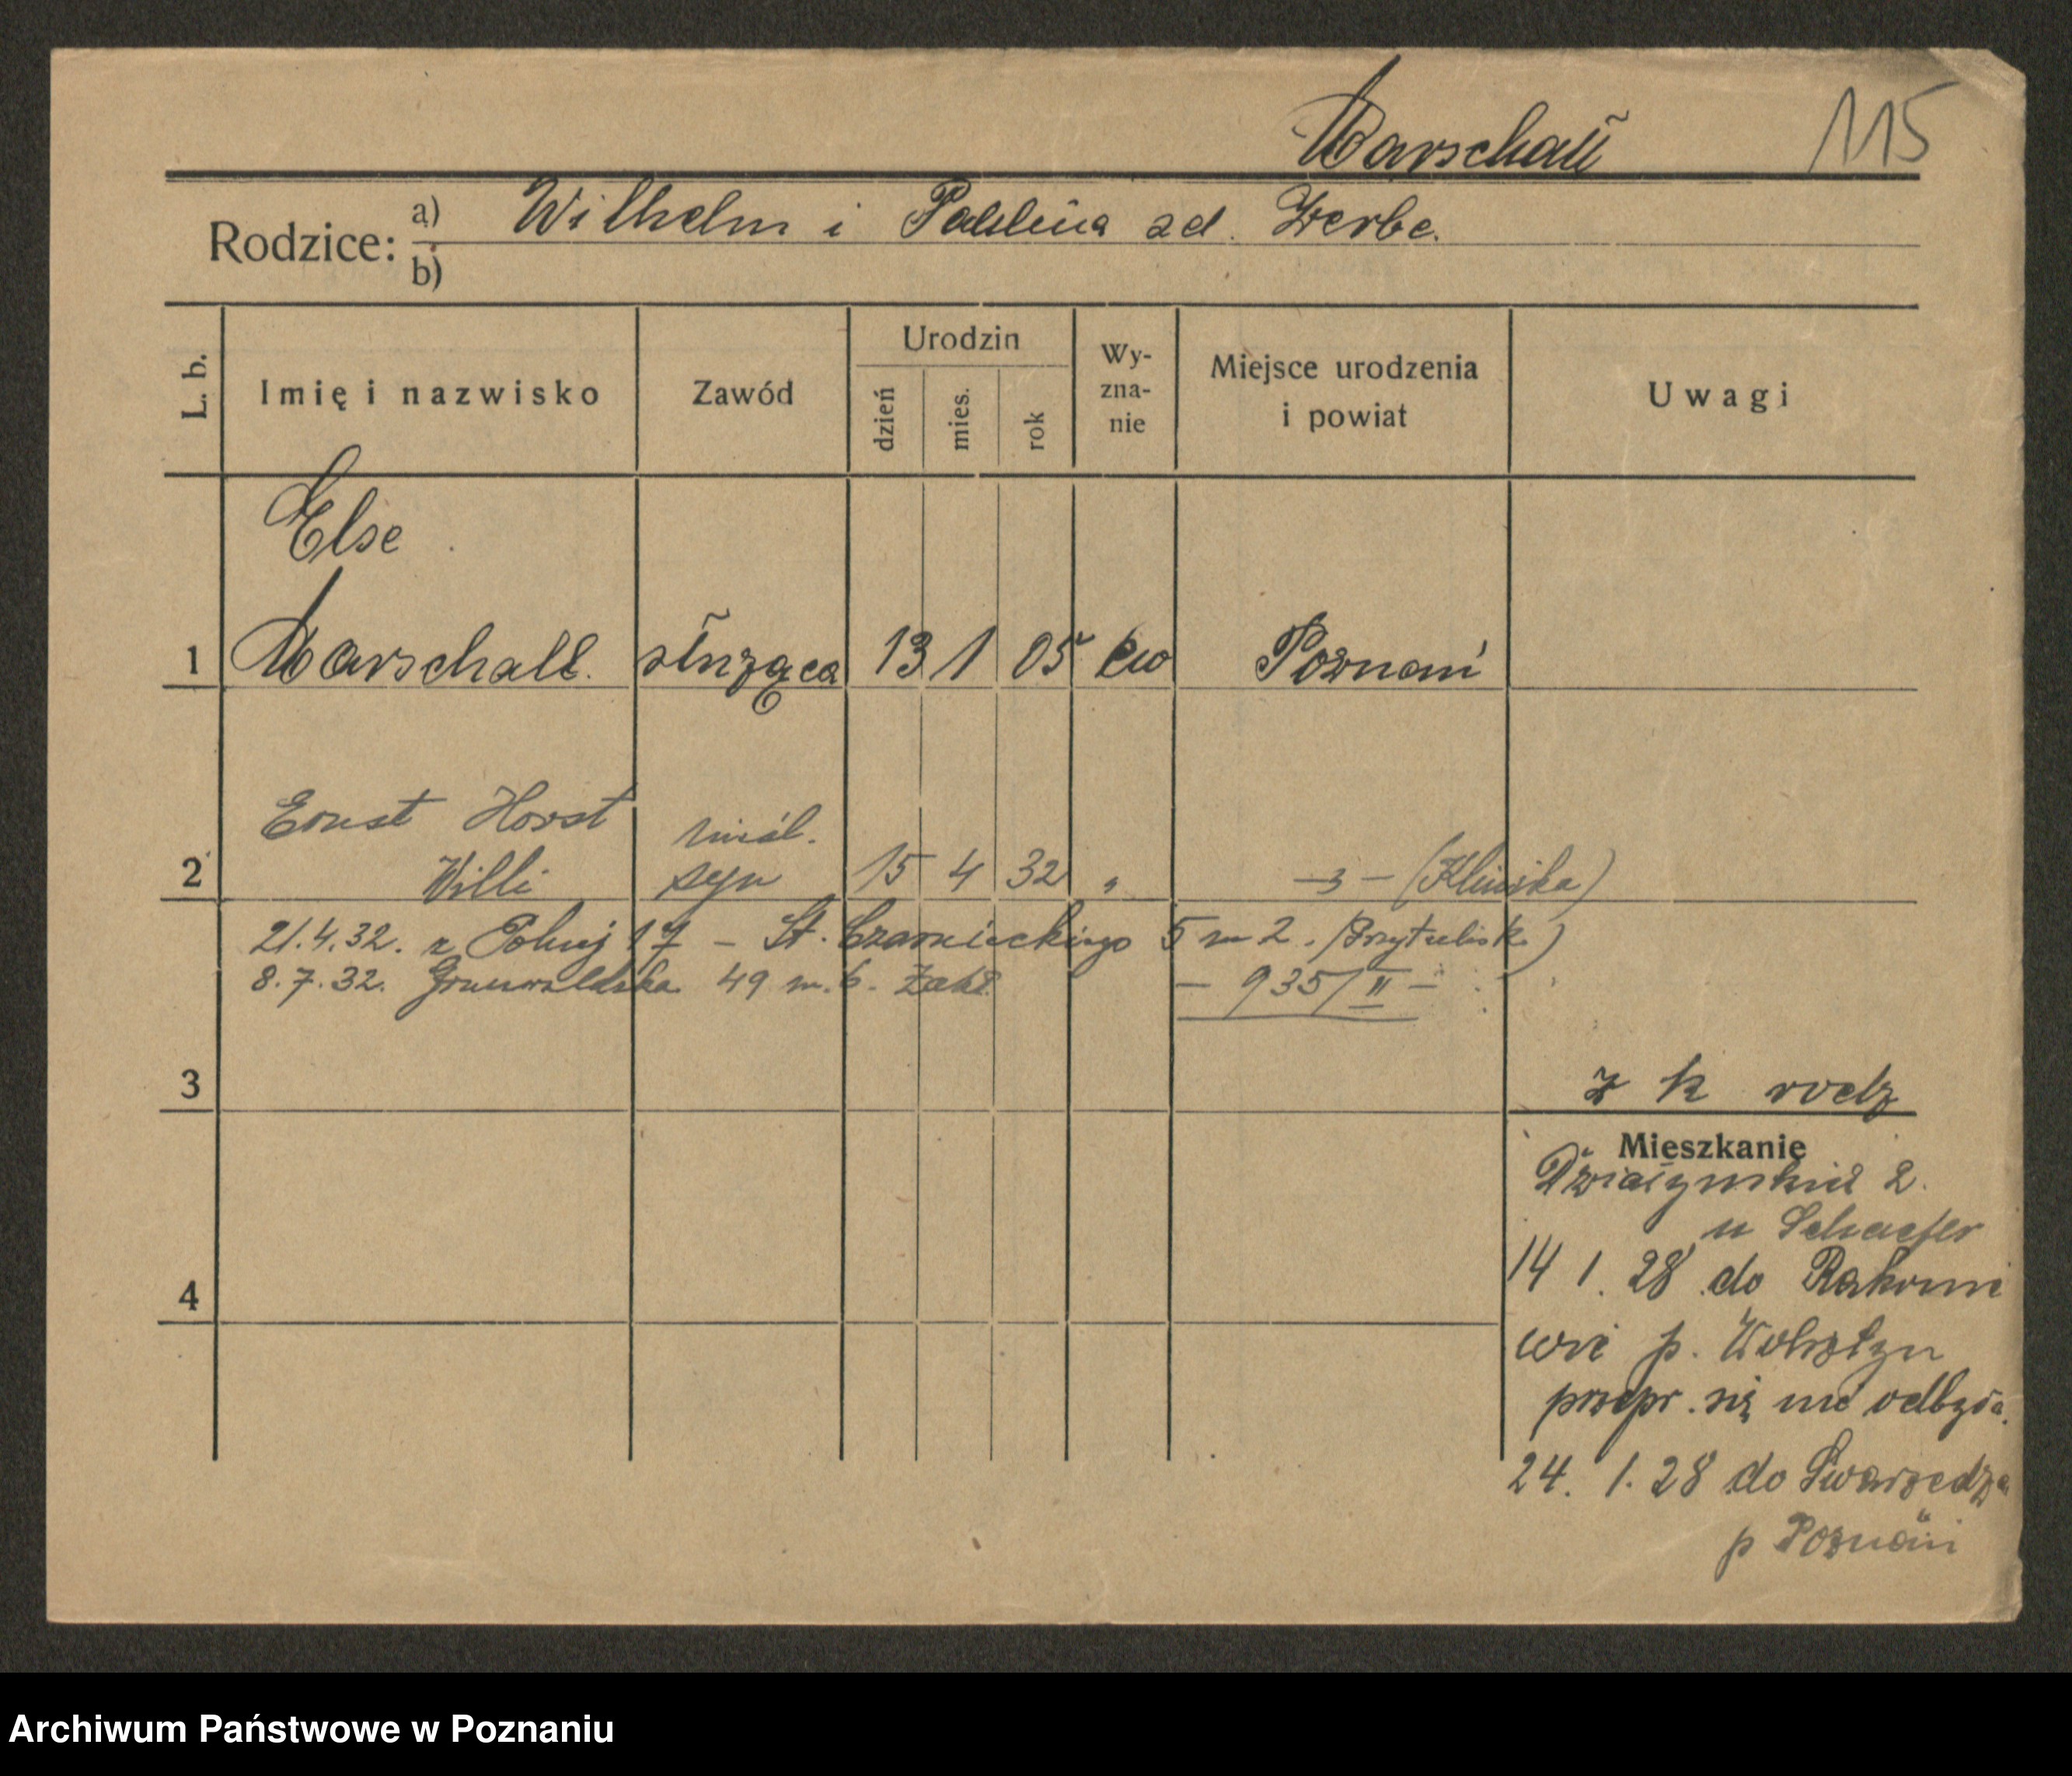 Marschall
115
Rodzice: a) Wilhelm i Paulina zd. Zerbe.
b)
L. b.
Imię i nazwisko
Zawód
Urodzin
dzień
mies.
rok
Wy-
zna-
nie
Miejsce urodzenia
i powiat
Uwagi
Else
1 Marschall. służąca 13 1 05 ew Poznań
Ernst Horst nieśl.
2 Willi syn 15 4 32 " -„- (Klinika)
21.4.32. z Polnej 17 - St. Czarnieckiego 5 m 2. (Przytulisk.)
8.7.32. Grunwaldzka 49 m. 6. Zakł. - 935/II -
3
z k rodz
Mieszkanie
Działyńskich 2.
u Schaefer
14 1. 28 do
p. Wolsztyn
przepr. się nie odbyła.
24. 1. 28 do Swarzędza
p Poznań
4
Archiwum Państwowe w Poznaniu